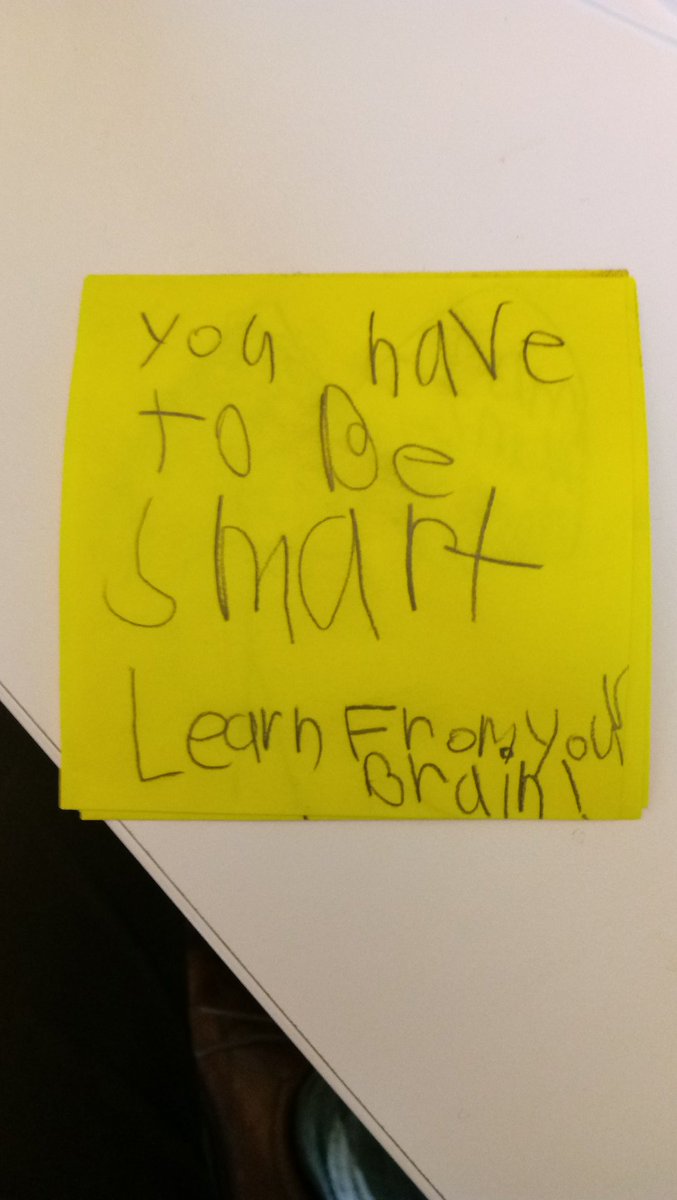 you have
to Be
smart
Learn From your
Brain!